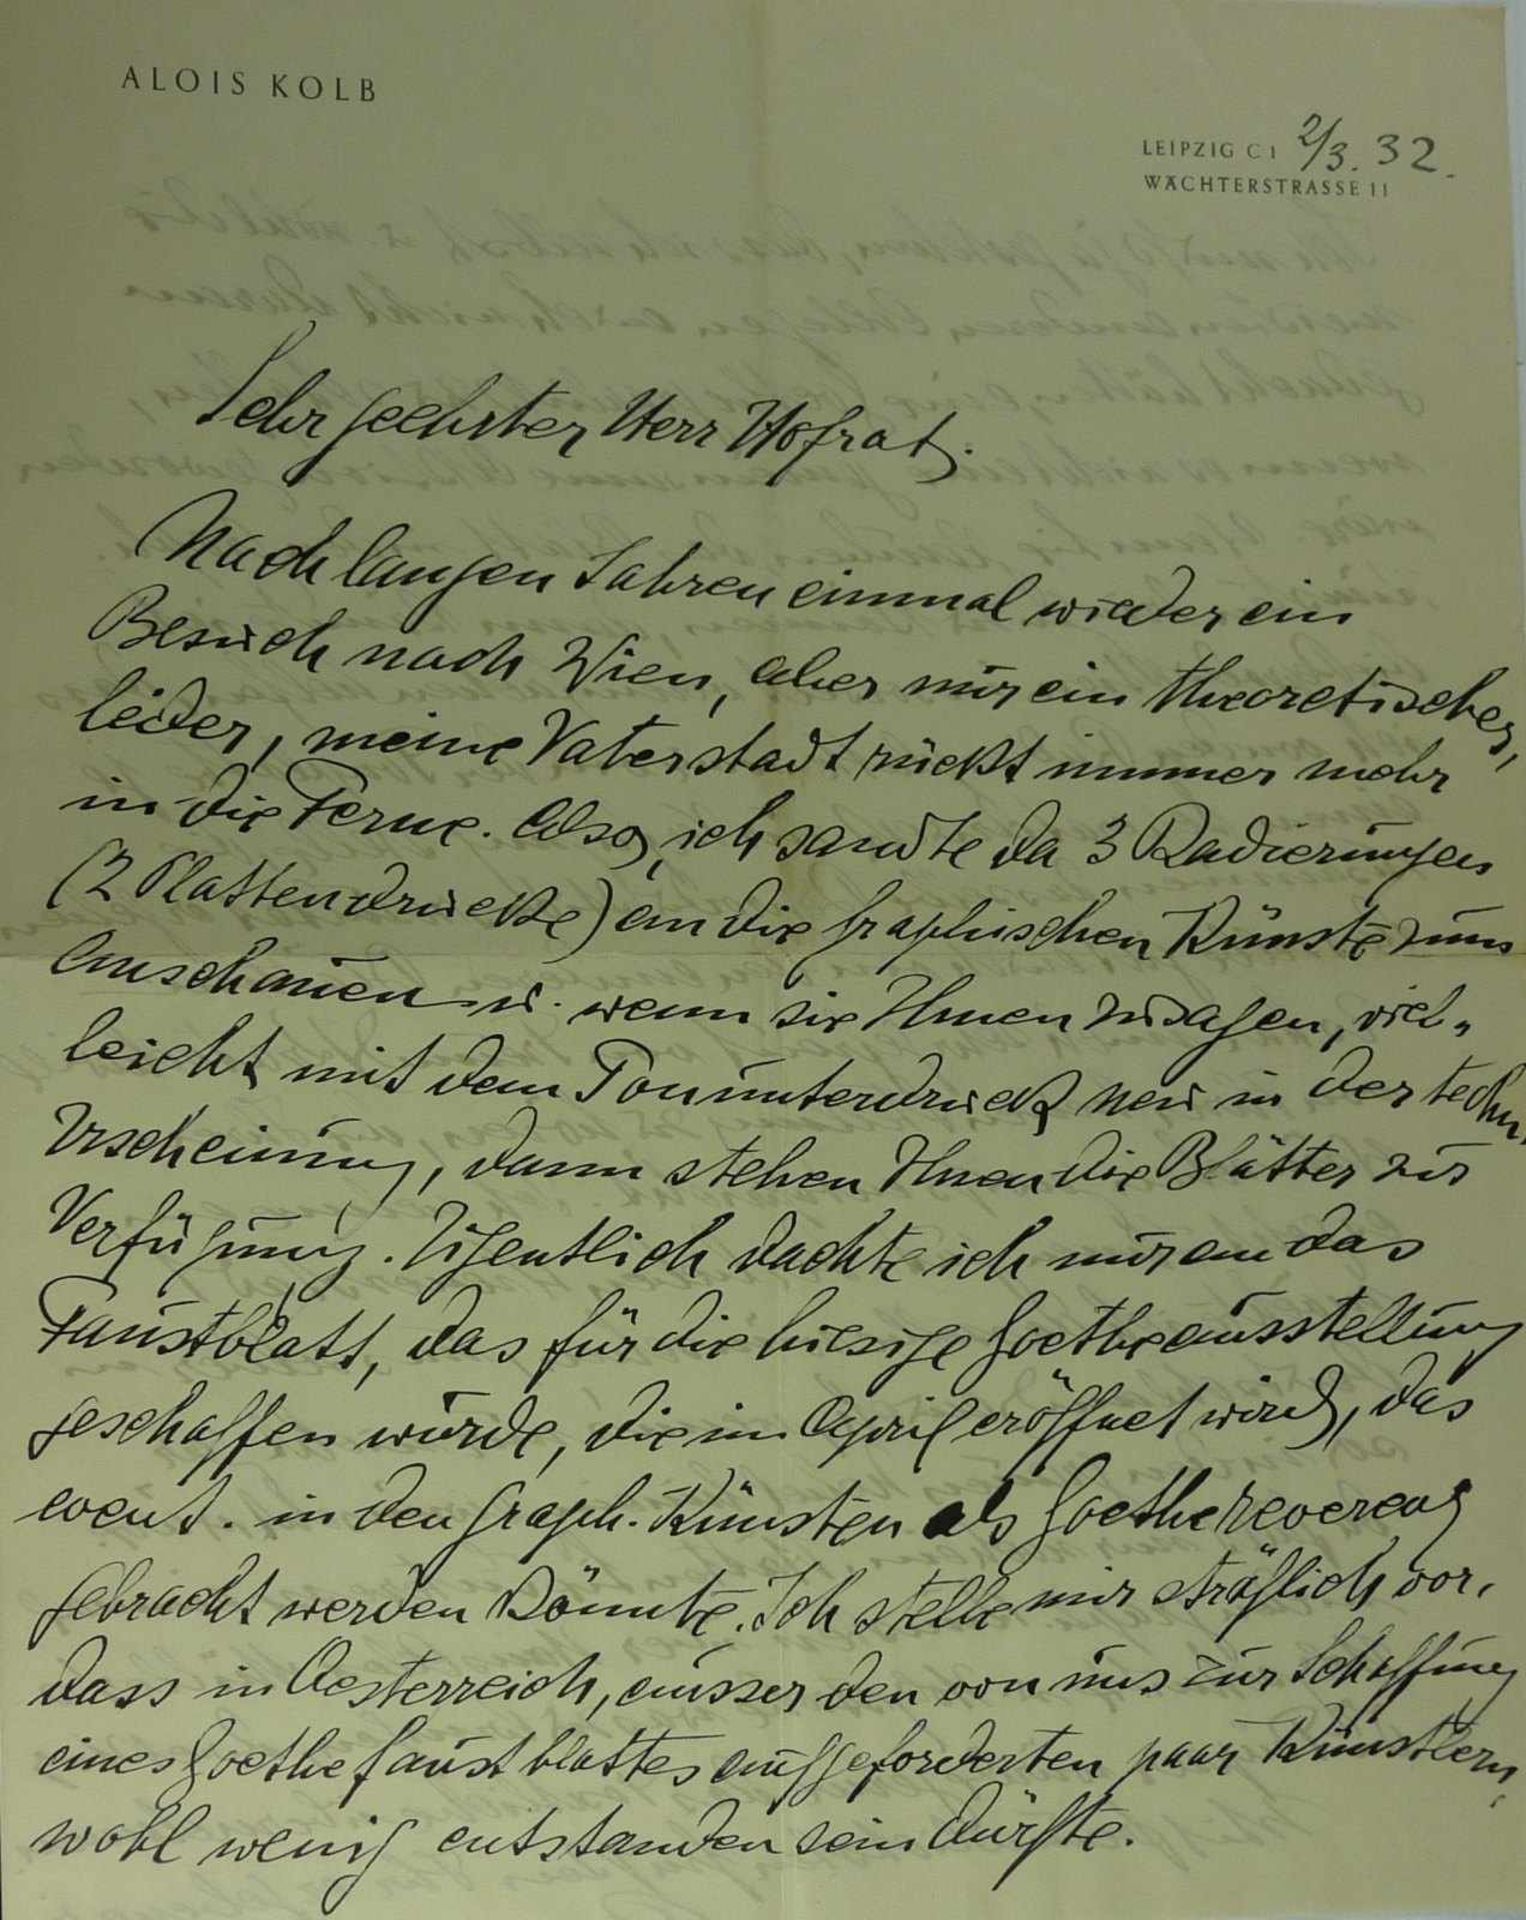 ALOIS KOLB
LEIPZIG C 1 2/3. 32.
WÄCHTERSTRASSE 11
Sehr geehrter Herr Hofrat.
Nach langen Jahren einmal wieder ein
Besuch nach Wien, aber nur ein theoretischer,
leider, meine Vaterstadt rückt immer mehr
in die Ferne. Also, ich sandte da 3 Radierungen
(2 Plattendrucke) an die graphischen Künste zum
Anschauen u. wenn sie Ihnen zusagen, viel„
leicht mit dem Tonunterdruck neu in der techn.
Erscheinung, dann stehen Ihnen die Blätter zur
Verfügung. Eigentlich dachte ich nur an das
Faustblatt, das für die hiesige Goetheausstellung
geschaffen wurde, die im April eröffnet wird, das
event. in den graph. Künsten als Goethereverenz
gebracht werden könnte. Ich stelle mir sträflich vor,
dass in Oesterreich, ausser den von uns zur Schaffung
eines Goethefaustblattes aufgeforderten paar Künstlern,
wohl wenig entstanden sein dürfte.